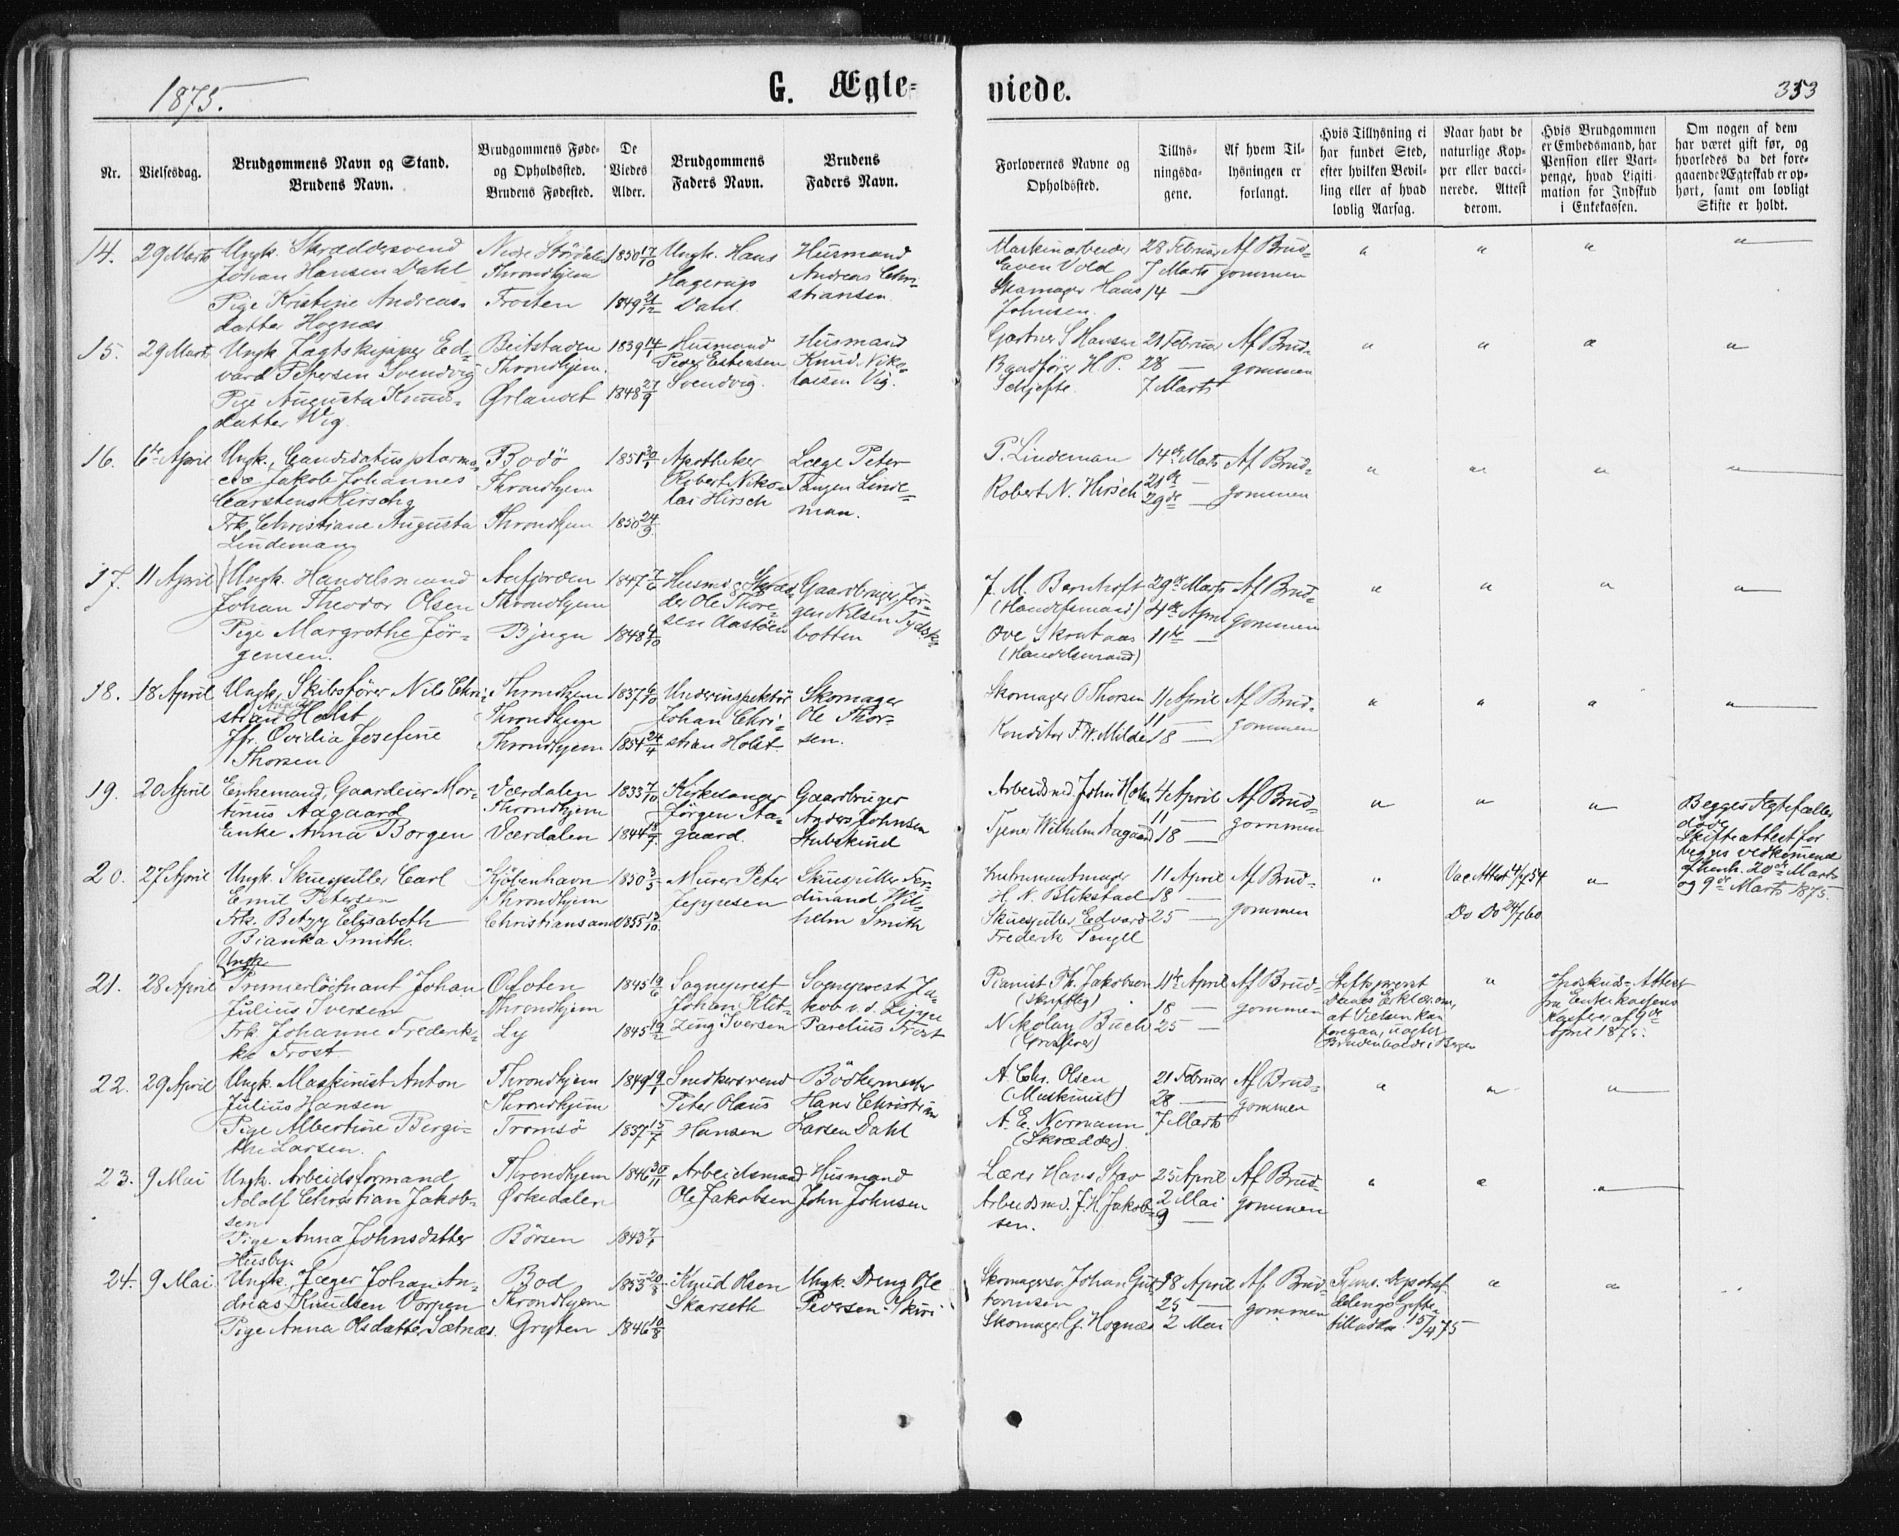 1875.
G. Ægte-
viede.
353
Nr.
Vielsesdag.
Brudgommens Navn og Stand.
Brudens Navn.
Brudgommens Føde-
og Opholdssted.
Brudens Fødested.
De
Viedes
Alder.
Brudgommens
Faders Navn.
Brudens
Faders Navn.
Forlovernes Navne og
Opholdssted.
Tillys-
ningsda-
gene.
Af hvem Til-
lysningen er
forlangt.
Hvis Tillysning ei
har fundet Sted,
efter hvilken Bevil-
ling eller af hvad
lovlig Aarsag.
Naar havt de
naturlige Kop-
per eller vacci-
nerede. Attest
derom.
Hvis Brudgommen
er Embedsmand, har
Pension eller Vart-
penge, hvad Ligiti-
mation for Indskud
i Enkekassen.
Om nogen af dem
har været gift før, og
hvorledes da det fore-
gaaende Ægteskab er op-
hørt, samt om lovligt
Skifte er holdt.
14. 29 Marts
Ungk. Skræddersvend
Johan Hansen Dahl
Pige Kristine Andreas-
datter Hognæs
Nedre Størdalen
Throndhjem
Frosten
1850 17/10
1849 21/12
Ungk. Hans
Hagerup
Dahl.
Husmand
Andreas Chri-
stiansen.
Maskinarbeider
Even Vold
Skomager Hans
Johnsen.
28 Februar
7 Marts
14 —
Af Brud-
gommen
" " " "
15. 29 Marts
Ungk. Jagtskipper Ed-
vard Petersen Svendvig
Pige Augusta Knuds-
datter Wig.
Beitstaden
Throndhjem.
Ørlandet
1839 14/1
1848 27/9
Husmand
Peder Estensen
Svendvig.
Husmand
Knud Niko-
laisen Vig.
Gartner S Hansen
Bandfører H. P.
Schjefte.
21 Februar
28 —
7 Marts
Af Brud-
gommen
" " " "
16. 6te April
Ungk., Candidatus pharma-
ciæ Jakob Johannes
Carstens Hirsch
Frk. Christiane Augusta
Lindeman
Bodö
Throndhjem
Throndhjem
1851 30/1
1850 24/3
Apotheker
Robert Niko-
lai Hirsch
Læge Peter
Tangen Linde-
man.
P. Lindeman
Robert N. Hirsch
14de Marts
21de —
29de —
Af Brud-
gommen
" " " "
17. 11 April
Ungk. Handelsmand
Johan Theodor Olsen
Pige Margrethe Jör-
gensen.
Aafjorden
Throndhjem
Bjugn
1847 7/6
1848 4/10
Husmd & Skræd-
der Ole Thore-
sen Aastöen
Gaardbruger Jør-
gen Nilsen Tydsk-
botten
J. M. Bernhoft
(Handelsmand)
Ove Skrutaas
(Handelsmand)
29de Marts
4de April
11te —
Af Brud-
gommen
" " " "
18. 18 April
Ungk, Skibsfører Nils Chri-
stian Holst
Jfr. Ovidia Josefine
Thorsen
Throndhjem
Throndhjem
Throndhjem
1837 6/10
1854 24/4
Underinspektör
Johan Chri-
stian Holst.
Skomager
Ole Thor-
sen.
Skomager O Thorsen
Konditor F. W. Milde
11 April
11 —
18 —
Af Brud-
gommen
" " " "
19. 20 April
Enkemand, Gaardeier Mor-
tinus Aagaard
Enke Anna Borgen
Værdalen
Throndhjem
Værdalen
1833 7/10
1844 18/7
Kirkesanger
Jørgen Aa-
gaard.
Gaardbruger
Anders Johnsen
Stubskind
Arbeidsmd. John Holm
Tjener Wilhelm Aagaard
4 April
11 —
18 —
Af Brud-
gommen
" " "
Begges Ægtefæller
døde
Skifteattest for
begges vedkommende
afhenh. 20de Marts
og 9de Marts 1875.
20. 27 April
Ungk. Skuespiller Carl
Emil Petersen
Frk. Betzy Elisabeth
Bianka Smith.
Kjöbenhavn
Throndhjem
Christiansand
1830 3/5
1855 13/10
Murer Peter
Jeppesen
Skuespiller Fer-
dinand Wil-
helm Smith
Instrumentmager
H. N. Blikstad
Skuespiller Edvard
Frederik Pengel
11 April
18 —
25 —
Af Brud-
gommen
"
Vac Attest 14/7 54
Do Do 24/7 60
"
21. 28 April
Ungk.
Premierløitnant Johan
Julius Iversen
Frk. Johanne Frederik-
ke Frost
Ofoten
Throndhjem
Ly
1845 19/6
1845 19/2
Sogneprest
Johan Klit-
zing Iversen
Sogneprest Ja-
kob v. d. Lippe
Parelius Frost
Pianist Th. Jakobsen
(skriftlig)
Nikolay Buch
(Grosserer)
11te April
18 —
25 —
Af Brud-
gommen
Stiftsprovst
Daaes Erklær. om,
at Vielsen kan
foregaa, uagtet
Bruden boede i Bergen
"
Indskuds-Attest
fra Enkekassens
Kasserer af 9de
April 1875.
22. 29 April
Ungk. Maskinist Anton
Julius Hansen
Pige Albertine Bergi-
the Larsen.
Throndhjem
Throndhjem
Tromsö
1849 19/1
1837 15/7
Smedkersvend
Peter Olaus
Hansen
Bödkermester
Hans Christian
Larsen Dahl
A. Chr. Olsen
(Maskinist)
A. E. Normann
(Skrædder)
21 Februar
28 —
7 Marts
Af Brud-
gommen
" " "
23. 9 Mai
Ungk. Arbeidsformand
Adolf Christian Jakob-
sen
Pige Anna Johnsdatter
Husby.
Throndhjem
Ørkedalen
Börsen
1846 30/11
1843 7/1
Arbeidsmand
Ole Jakobsen
Husmand
John Johnsen
Lærer Hans Stav
Arbeidsmd. J. H. Jakob-
sen.
25 April
2 Mai
9 —
Af Brud-
gommen
" " "
24. 9 Mai
Ungk. Jæger Johan An-
dreas Knudsen Vorpen
Pige Anna Olsdatter Sætnæs.
Bod
Throndhjem
Gryten
1853 20/8
1846 10/8
Knud Olsen
Skarseth
Ungk. Dreng Ole
Pedersen Skiri
Skomagersv. Johan Gut-
tormsen
Skomager G. Hognæs
18 April
25 —
2 Mai
Af Brud-
gommen
Depotaf-
delings Gifte-
tilladelse 15/4 75
" "